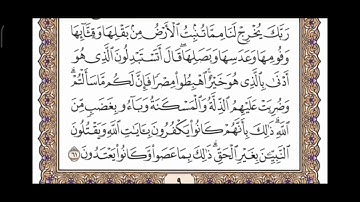 رَبَّكَ يُخْرِجْ لَنَا مِمَّا تُنۢبِتُ ٱلْأَرْضُ مِنۢ بَقْلِهَا وَقِثَّآئِهَا
وَفُومِهَا وَعَدَسِهَا وَبَصَلِهَا ۖ قَالَ أَتَسْتَبْدِلُونَ ٱلَّذِى هُوَ
أَدْنَىٰ بِٱلَّذِى هُوَ خَيْرٌ ۚ ٱهْبِطُوا۟ مِصْرًا فَإِنَّ لَكُم مَّا سَأَلْتُمْ ۗ
وَضُرِبَتْ عَلَيْهِمُ ٱلذِّلَّةُ وَٱلْمَسْكَنَةُ وَبَآءُو بِغَضَبٍ مِّنَ
ٱللَّهِ ۗ ذَٰلِكَ بِأَنَّهُمْ كَانُوا۟ يَكْفُرُونَ بِـَٔايَـٰتِ ٱللَّهِ وَيَقْتُلُونَ
ٱلنَّبِيِّـۧنَ بِغَيْرِ ٱلْحَقِّ ۗ ذَٰلِكَ بِمَا عَصَوا۟ وَّكَانُوا۟ يَعْتَدُونَ ٦١
٩